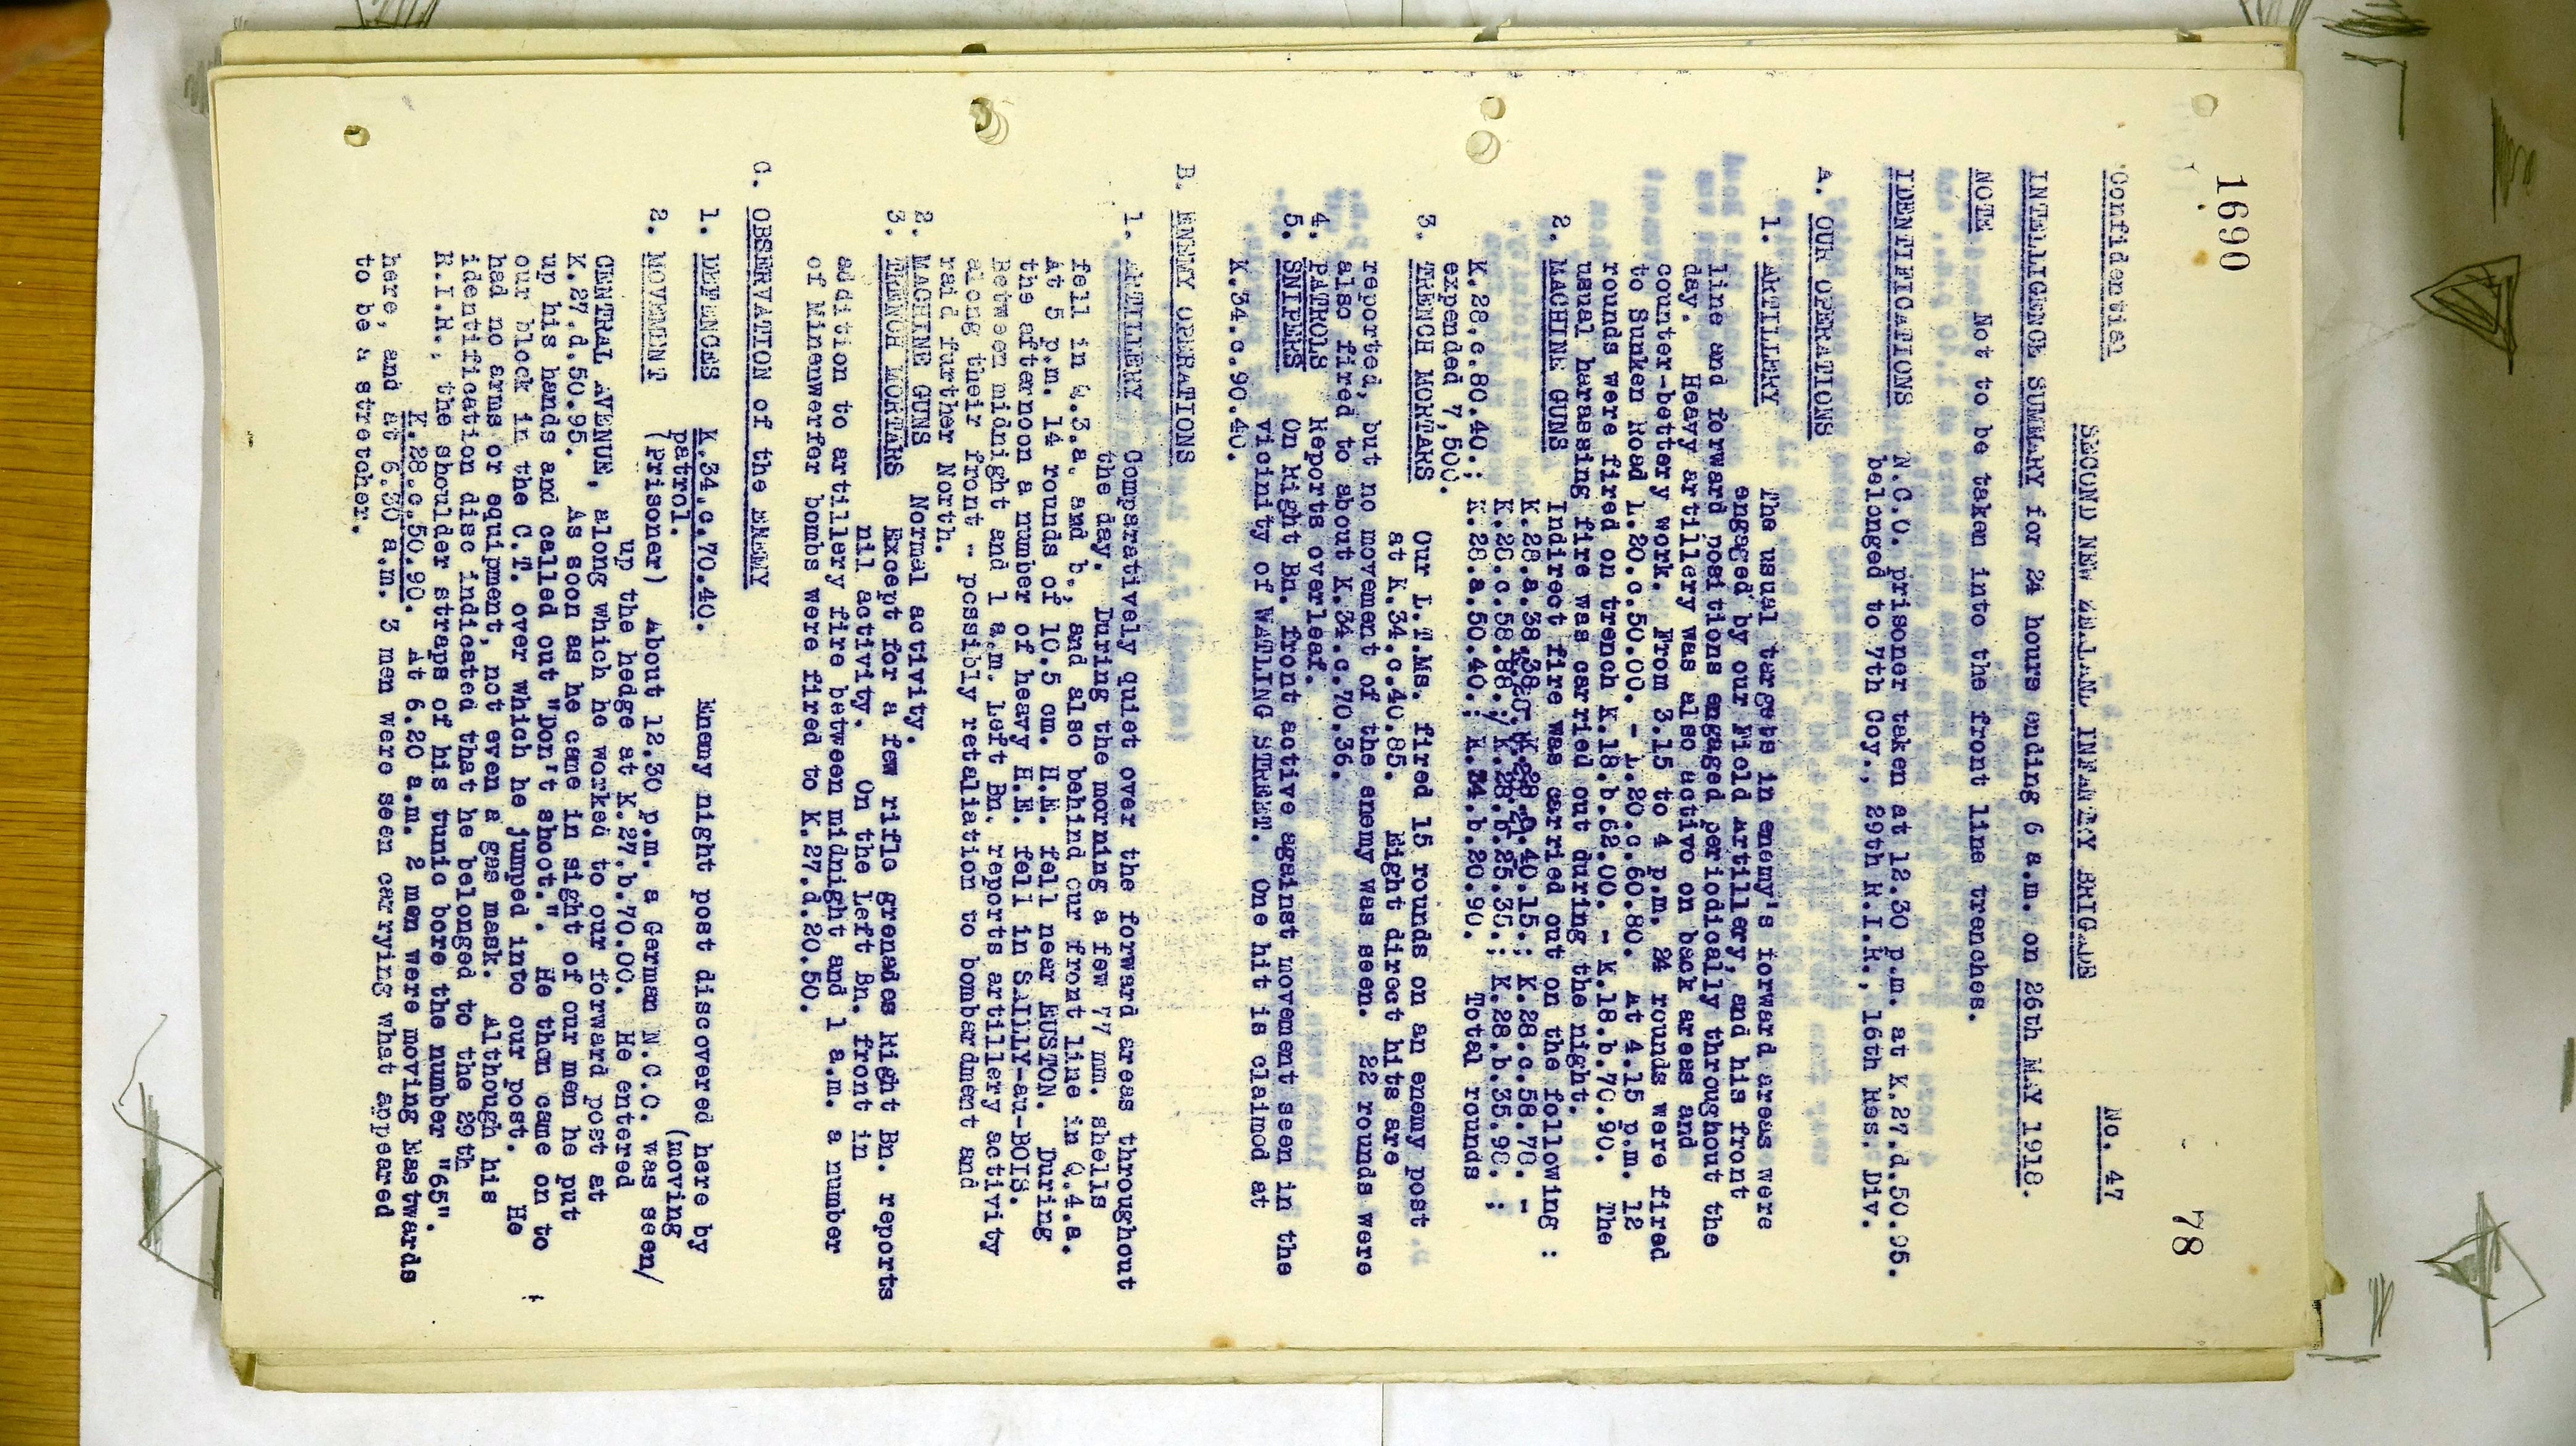 1690
78
Confidential
No. 47
SECOND NEW ZEALAND INFANTRY BRIGADE
INTELLIGENCE SUMMARY for 24 hours ending 6 a.m. on 26th MAY 1918.
NOTE Not to be taken into the front line trenches.
IDENTIFICATIONS N.C.O. prisoner taken at 12.30 p.m. at K.27.d.50.95.
belonged to 7th Coy., 29th R.I.R., 16th Res. Div.
A. OUR OPERATIONS
1. ARTILLERY The usual targets in enemy's forward areas were
engaged by our Field artillery, and his front
line and forward positions engaged periodically throughout the
day. Heavy artillery was also active on back areas and
counter-battery work. From 3.15 to 4 p.m. 24 rounds were fired
to Sunken Road L.20.c.50.00. - L.20.c.60.80. At 4.15 p.m. 12
rounds were fired on trench K.18.b.62.00. - K.18.b.70.90. The
usual harassing fire was carried out during the night.
2. MACHINE GUNS Indirect fire was carried out on the following :
K.28.a.38.38. K.28.c.40.15.; K.28.c.58.70. -
K.28.c.58.88.; K.28.b.25.35.; K.28.b.35.98. ;
K.28.c.80.40.; K.28.a.50.40.; K.34.b.20.90. Total rounds
expended 7,500.
3. TRENCH MORTARS Our L.T.Ms. fired 15 rounds on an enemy post
at K.34.c.40.85. Eight direct hits are
reported, but no movement of the enemy was seen. 22 rounds were
also fired to about K.34.c.70.36.
4. PATROLS Reports overleaf.
5. SNIPERS On Right Bn. front active against movement seen in the
vicinity of WATLING STREET. One hit is claimed at
K.34.c.90.40.
B. ENEMY OPERATIONS
1. ARTILLERY Comparatively quiet over the forward areas throughout
the day. During the morning a few 77 mm. shells
fell in Q.3.a. and b., and also behind our front line in Q.4.a.
At 5 p.m. 14 rounds of 10.5 cm. H.E. fell near EUSTON. During
the afternoon a number of heavy H.E. fell in SAILLY-au-BOIS.
Between midnight and 1 a.m. Left Bn. reports artillery activity
along their front - possibly retaliation to bombardment and
raid further North.
2. MACHINE GUNS Normal activity.
3. TRENCH MORTARS Except for a few rifle grenades Right Bn. reports
nil activity. On the Left Bn. front in
addition to artillery fire between midnight and 1 a.m. a number
of Minenwerfer bombs were fired to K.27.d.20.50.
C. OBSERVATION of the ENEMY
1. DEFENCES K.34.c.70.40. Enemy night post discovered here by
patrol.
2. MOVEMENT (Prisoner) About 12.30 p.m. a German N.C.O. was seen/
(moving
up the hedge at K.27.b.70.00. He entered
CENTRAL AVENUE, along which he worked to our forward post at
K.27.d.50.95. As soon as he came in sight of our men he put
up his hands and called out "Don't shoot.". He then came on to
our block in the C.T. over which he jumped into our post. He
had no arms or equipment, not even a gas mask. Although his
identification disc indicated that he belonged to the 29th
R.I.R., the shoulder straps of his tunic bore the number "65".
K.28.c.50.90. At 6.20 a.m. 2 men were moving Eastwards
here, and at 6.30 a.m. 3 men were seen carrying what appeared
to be a stretcher.